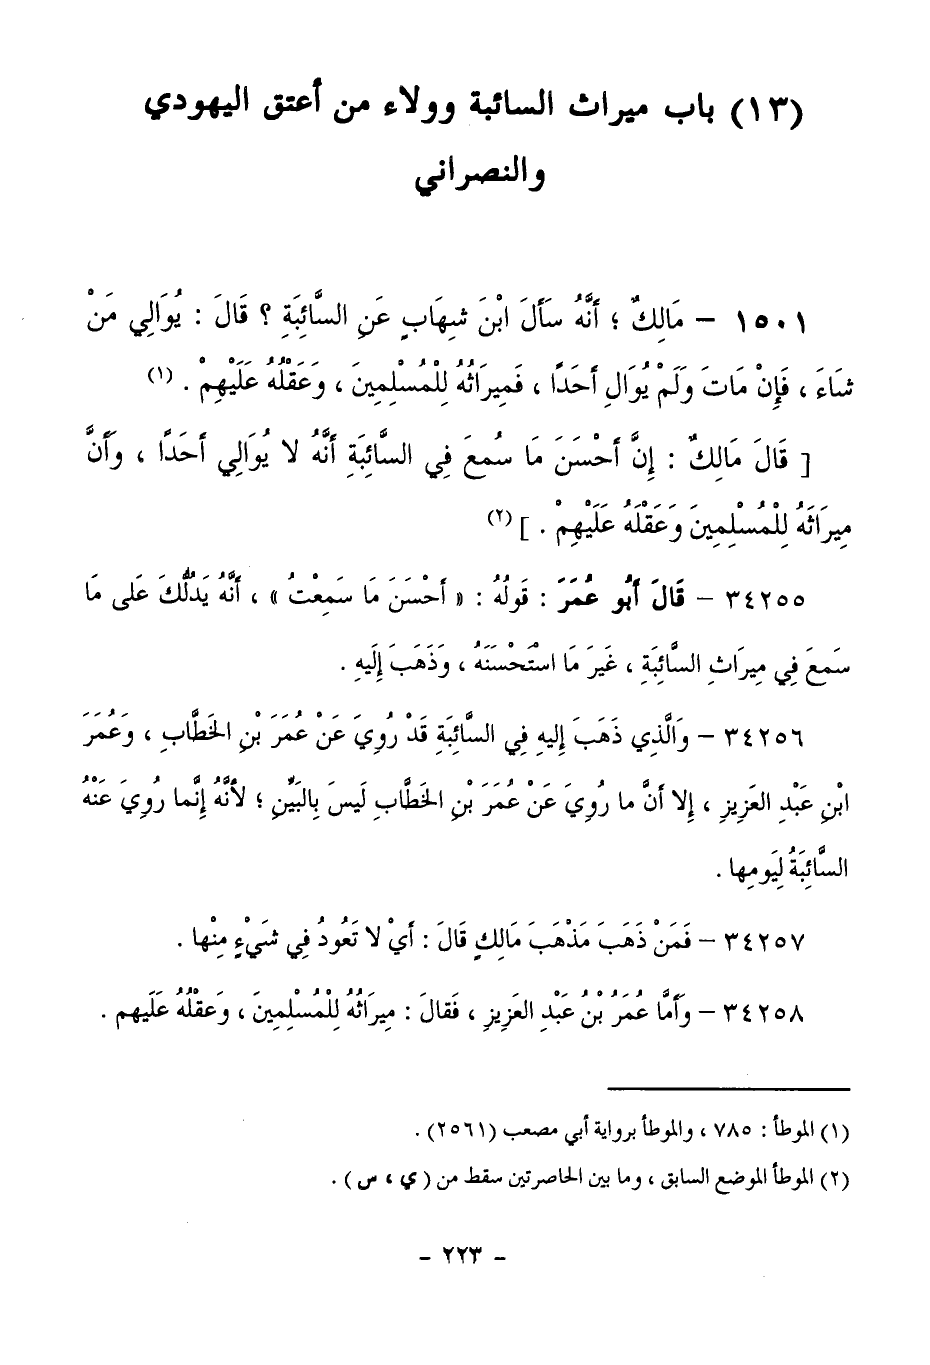 (١٣) باب ميراث السائبة وولاء من أعتق اليهودي
والنصراني
١٥٠١ – مَالِكٌ ؛ أَنَّهُ سَأَلَ ابْنَ شِهَابٍ عَنِ السَّائِبَةِ ؟ قَالَ : يُوَالِي مَنْ
شَاءَ ، فَإِنْ مَاتَ وَلَمْ يُوَالِ أَحَدًا ، فَمِيرَاثُهُ لِلْمُسْلِمِينَ ، وَعَقْلُهُ عَلَيْهِمْ . (١)
[ قَالَ مَالِكٌ : إِنَّ أَحْسَنَ مَا سُمِعَ فِي السَّائِبَةِ أَنَّهُ لا يُوَالِي أَحَدًا ، وَأَنَّ
مِيرَاثَهُ لِلْمُسْلِمِينَ وَعَقْلَهُ عَلَيْهِمْ . ] (٢)
٣٤٢٥٥ – قَالَ أَبُو عُمَرَ : قَولُهُ : « أَحْسَنَ مَا سَمِعْتُ » ، أَنَّهُ يَدُلُّكَ عَلى مَا
سَمعَ فِي مِيرَاثِ السَّائِبَةِ ، غَيرَ مَا اسْتَحْسَنَهُ ، وَذَهَبَ إِلَيهِ .
٣٤٢٥٦ – وَالَّذِي ذَهَبَ إِليهِ فِي السَّائِبَةِ قَدْ رُوِيَ عَنْ عُمَرَ بْنِ الخَطَّابِ ، وَعُمَرَ
ابْنِ عَبْدِ العَزِيزِ ، إِلا أَنَّ ما رُوِيَ عَنْ عُمَرَ بْنِ الخَطَّابِ لَيسَ بِالبَيِّنِ ؛ لأَنَّهُ إِنَّما رُوِيَ عَنْهُ
السَّائِبَةُ لِيَومِها .
٣٤٢٥٧ – فَمَنْ ذَهَبَ مَذْهَبَ مَالِكٍ قَالَ : أَيْ لا تَعُودُ فِي شَيْءٍ مِنْها .
٣٤٢٥٨ – وَأَمَّا عُمَرُ بْنُ عَبْدِ العَزِيزِ ، فَقالَ : مِيرَاثُهُ لِلْمُسْلِمِينَ ، وَعَقْلُهُ عَلَيهم .
(١) الموطأ : ٧٨٥ ، والموطأ برواية أبي مصعب (٢٥٦١) .
(٢) الموطأ الموضع السابق ، وما بين الحاصرتين سقط من ( ي ، س ) .
– ٢٢٣ –